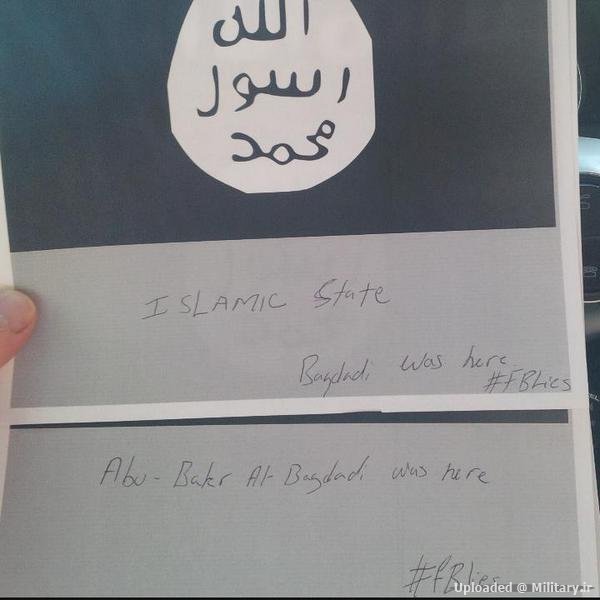 الله
رسول
محمد
ISLAMIC State
Bagdadi was here
#FBLies
Abu-Bakr Al-Bagdadi was here
#FBlies
Uploaded @ Military.ir